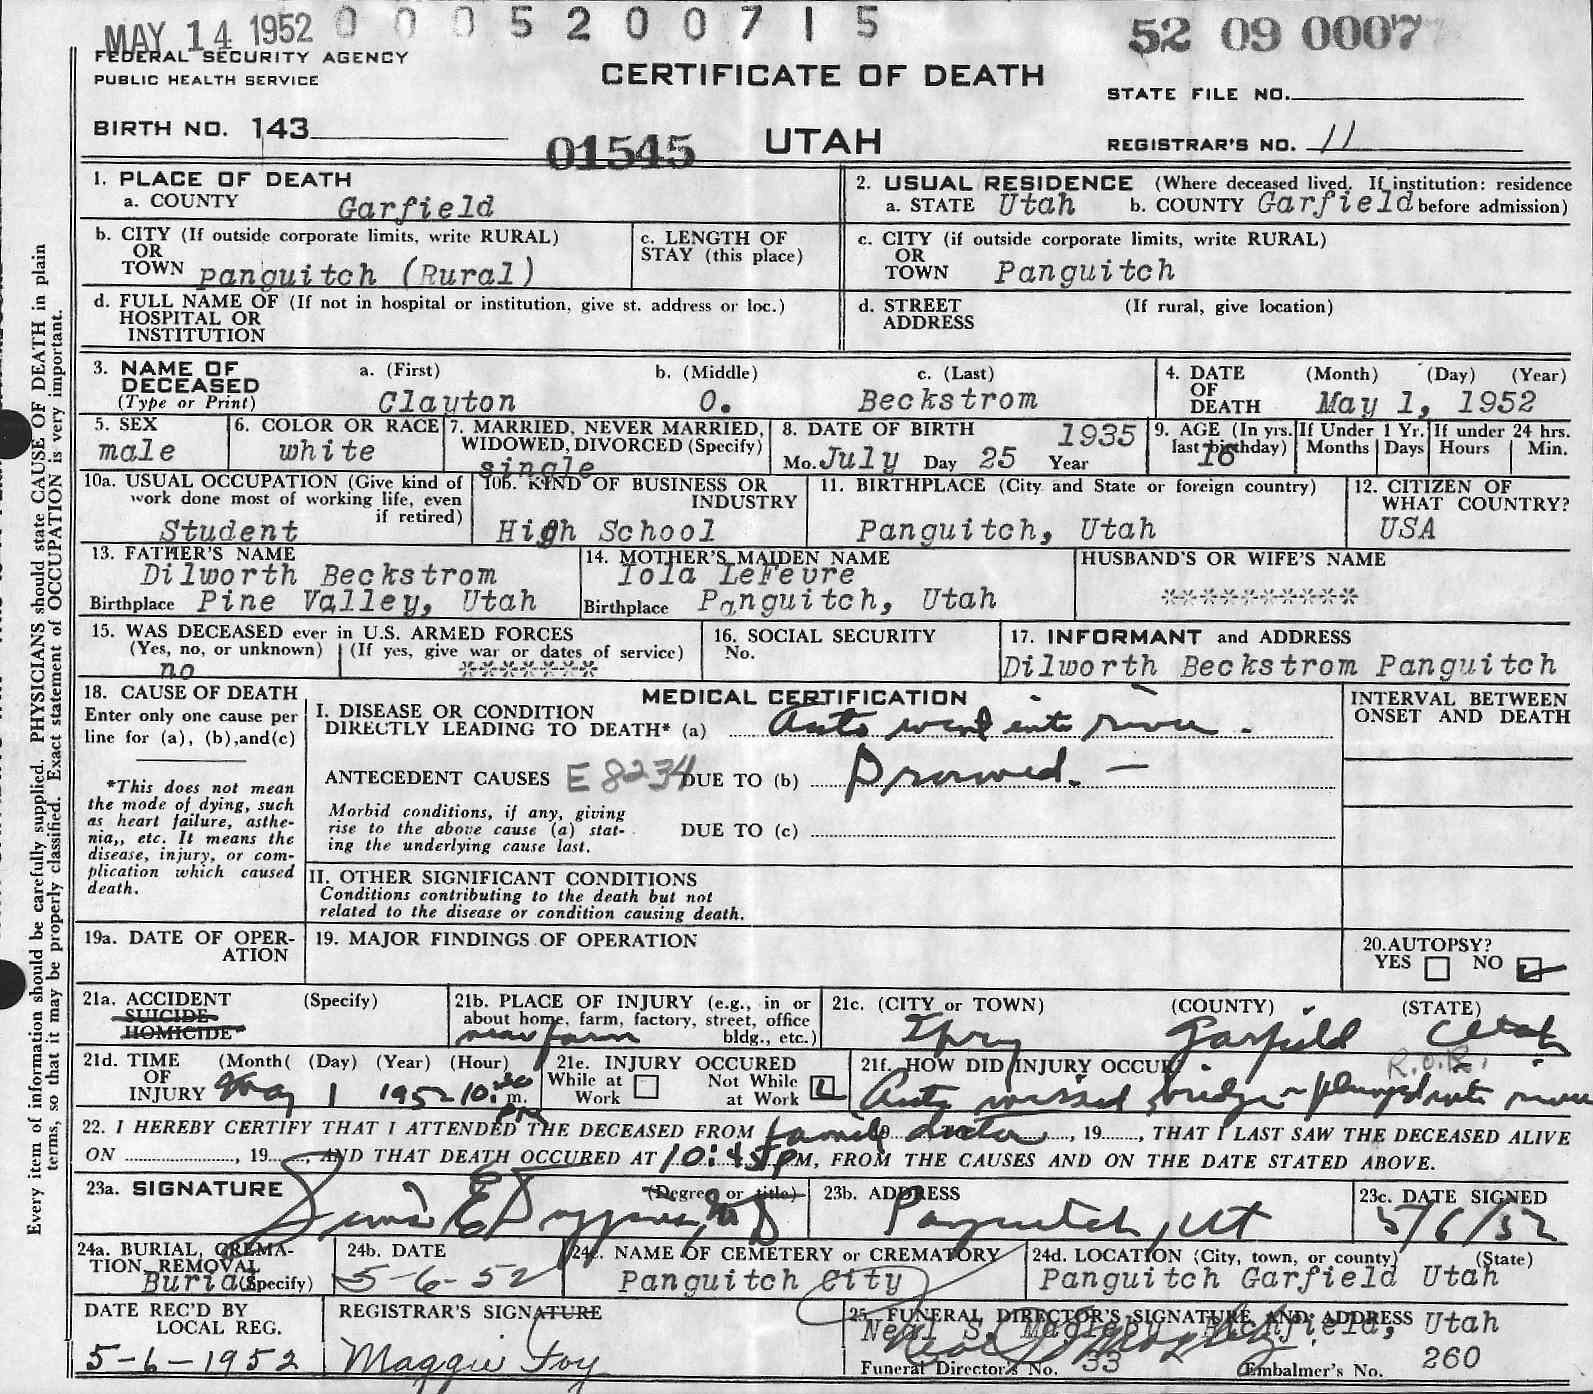 MAY 14 1952 0 0 0 5 2 0 0 7 1 5 52 09 0007
FEDERAL SECURITY AGENCY
PUBLIC HEALTH SERVICE
CERTIFICATE OF DEATH
STATE FILE NO.
BIRTH NO. 143
01545
UTAH
REGISTRAR'S NO. 11
1. PLACE OF DEATH
a. COUNTY Garfield
2. USUAL RESIDENCE (Where deceased lived. If institution: residence
a. STATE Utah b. COUNTY Garfield before admission)
b. CITY (If outside corporate limits, write RURAL)
OR
TOWN panguitch (Rural)
c. LENGTH OF
STAY (this place)
c. CITY (if outside corporate limits, write RURAL)
OR
TOWN Panguitch
d. FULL NAME OF (If not in hospital or institution, give st. address or loc.)
HOSPITAL OR
INSTITUTION
d. STREET (If rural, give location)
ADDRESS
3. NAME OF
DECEASED
(Type or Print)
a. (First) b. (Middle) c. (Last)
Clayton O. Beckstrom
4. DATE (Month) (Day) (Year)
OF
DEATH May 1, 1952
5. SEX
male
6. COLOR OR RACE
white
7. MARRIED, NEVER MARRIED,
WIDOWED, DIVORCED (Specify)
single
8. DATE OF BIRTH 1935
Mo. July Day 25 Year
9. AGE (In yrs.
last birthday)
16
If Under 1 Yr.
Months Days
If under 24 hrs.
Hours Min.
10a. USUAL OCCUPATION (Give kind of
work done most of working life, even
if retired)
Student
10b. KIND OF BUSINESS OR
INDUSTRY
High School
11. BIRTHPLACE (City and State or foreign country)
Panguitch, Utah
12. CITIZEN OF
WHAT COUNTRY?
USA
13. FATHER'S NAME
Dilworth Beckstrom
Birthplace Pine Valley, Utah
14. MOTHER'S MAIDEN NAME
Iola LeFevre
Birthplace Panguitch, Utah
HUSBAND'S OR WIFE'S NAME
**********
15. WAS DECEASED ever in U.S. ARMED FORCES
(Yes, no, or unknown) (If yes, give war or dates of service)
no *******
16. SOCIAL SECURITY
No.
17. INFORMANT and ADDRESS
Dilworth Beckstrom Panguitch
18. CAUSE OF DEATH
Enter only one cause per
line for (a), (b),and(c)
*This does not mean
the mode of dying, such
as heart failure, asthe-
nia,, etc. It means the
disease, injury, or com-
plication which caused
death.
MEDICAL CERTIFICATION
I. DISEASE OR CONDITION
DIRECTLY LEADING TO DEATH* (a) Auto went into river.
ANTECEDENT CAUSES E 8234 DUE TO (b) Drowned. —
Morbid conditions, if any, giving
rise to the above cause (a) stat-
ing the underlying cause last.
DUE TO (c)
INTERVAL BETWEEN
ONSET AND DEATH
II. OTHER SIGNIFICANT CONDITIONS
Conditions contributing to the death but not
related to the disease or condition causing death.
19a. DATE OF OPER-
ATION
19. MAJOR FINDINGS OF OPERATION
20.AUTOPSY?
YES NO
21a. ACCIDENT (Specify)
SUICIDE
HOMICIDE
21b. PLACE OF INJURY (e.g., in or
about home, farm, factory, street, office
bldg., etc.)
near farm
21c. (CITY or TOWN) (COUNTY) (STATE)
Spry Garfield Utah
21d. TIME (Month( (Day) (Year) (Hour)
OF
INJURY May 1 1952 10: m.
PM
21e. INJURY OCCURED
While at
Work
Not While
at Work
21f. HOW DID INJURY OCCUR
R.O.R.
Auto missed bridge - plunged into river
22. I HEREBY CERTIFY THAT I ATTENDED THE DECEASED FROM family doctor, 19......, THAT I LAST SAW THE DECEASED ALIVE
ON ..................., 19......, AND THAT DEATH OCCURED AT 10:45 P M, FROM THE CAUSES AND ON THE DATE STATED ABOVE.
23a. SIGNATURE (Degree or title)
M D
23b. ADDRESS
Panguitch, Ut
23c. DATE SIGNED
5/6/52
24a. BURIAL, CREMA-
TION, REMOVAL
Burial (Specify)
24b. DATE
5-6-52
24c. NAME OF CEMETERY or CREMATORY
Panguitch City
24d. LOCATION (City, town, or county) (State)
Panguitch Garfield Utah
DATE REC'D BY
LOCAL REG.
5-6-1952
REGISTRAR'S SIGNATURE
Maggie Foy
25. FUNERAL DIRECTOR'S SIGNATURE AND ADDRESS
Neal S. Magleby Richfield, Utah
Funeral Director's No. 33 Embalmer's No. 260
Every item of information should be carefully supplied. PHYSICIANS should state CAUSE OF DEATH in plain
terms, so that it may be properly classified. Exact statement of OCCUPATION is very important.